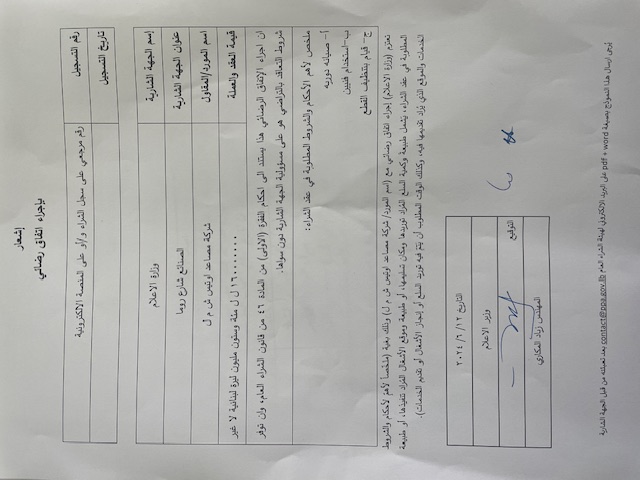 إشعار
بإجراء اتفاق رضائي
رقم التسجيل
رقم مرجعي على سجل الشراء و/او على المنصة الالكترونية
تاريخ التسجيل
إسم الجهة الشارية
وزارة الاعلام
عنوان الجهة الشارية
الصنائع شارع روما
اسم المورد/المقاول
شركة مصاعد اوتيس ش م ل
قيمة العقد والعملة
١٦٠٠٠٠٠٠٠ ل ل مئة وستون مليون ليرة لبنانية لا غير
ان اجراء الإتفاق الرضائي هذا يستند الى احكام الفقرة (الاولى) من المادة ٤٦ من قانون الشراء العام، وان توفر
شروط التعاقد بالتراضي هو على مسؤولية الجهة الشارية دون سواها.
ملخص لأهم الأحكام والشروط المطلوبة في عقد الشراء:
أ- صيانه دوريه
ب-استخدام فنيين
ج- قيام بتنظيف القطع
تعتزم (وزارة الاعلام) إجراء اتفاق رضائي مع (اسم المورد/ شركة مصاعد اوتيس ش م ل) وذلك بغية (ملخصاً لأهم الأحكام والشروط
المطلوبة في عقد الشراء، يشمل طبيعة وكمية السلع المُراد توريدها ومكان تسليمها، أو طبيعة وموقع الأشغال المُراد تنفيذها، أو طبيعة
الخدمات والموقع الذي يُراد تقديمها فيه، وكذلك الوقت المطلوب أن يتم فيه توريد السلع أو إنجاز الأشغال أو تقديم الخدمات).
التاريخ ١٢/ ٦/ ٢٠٢٤
وزير الاعلام
التوقيع
المهندس زياد المكاري
يُرجى ارسال هذا النموذج بصيغة pdf + word على البريد الالكتروني لهيئة الشراء العام contact@ppa.gov.lb بعد تعبئته من قبل الجهة الشارية